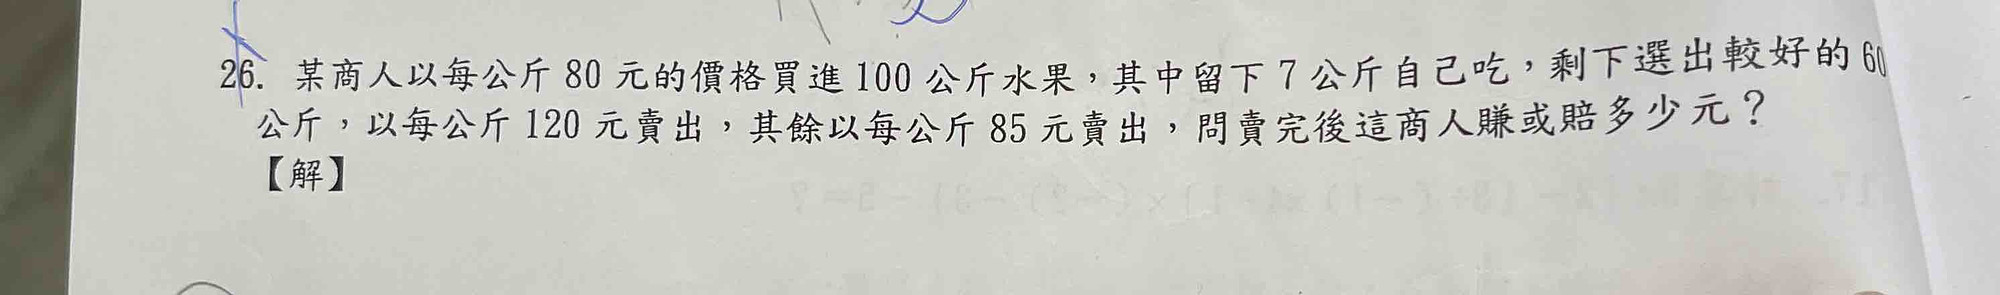 26. 某商人以每公斤 80 元的價格買進 100 公斤水果，其中留下 7 公斤自己吃，剩下選出較好的 60
公斤，以每公斤 120 元賣出，其餘以每公斤 85 元賣出，問賣完後這商人賺或賠多少元？
【解】